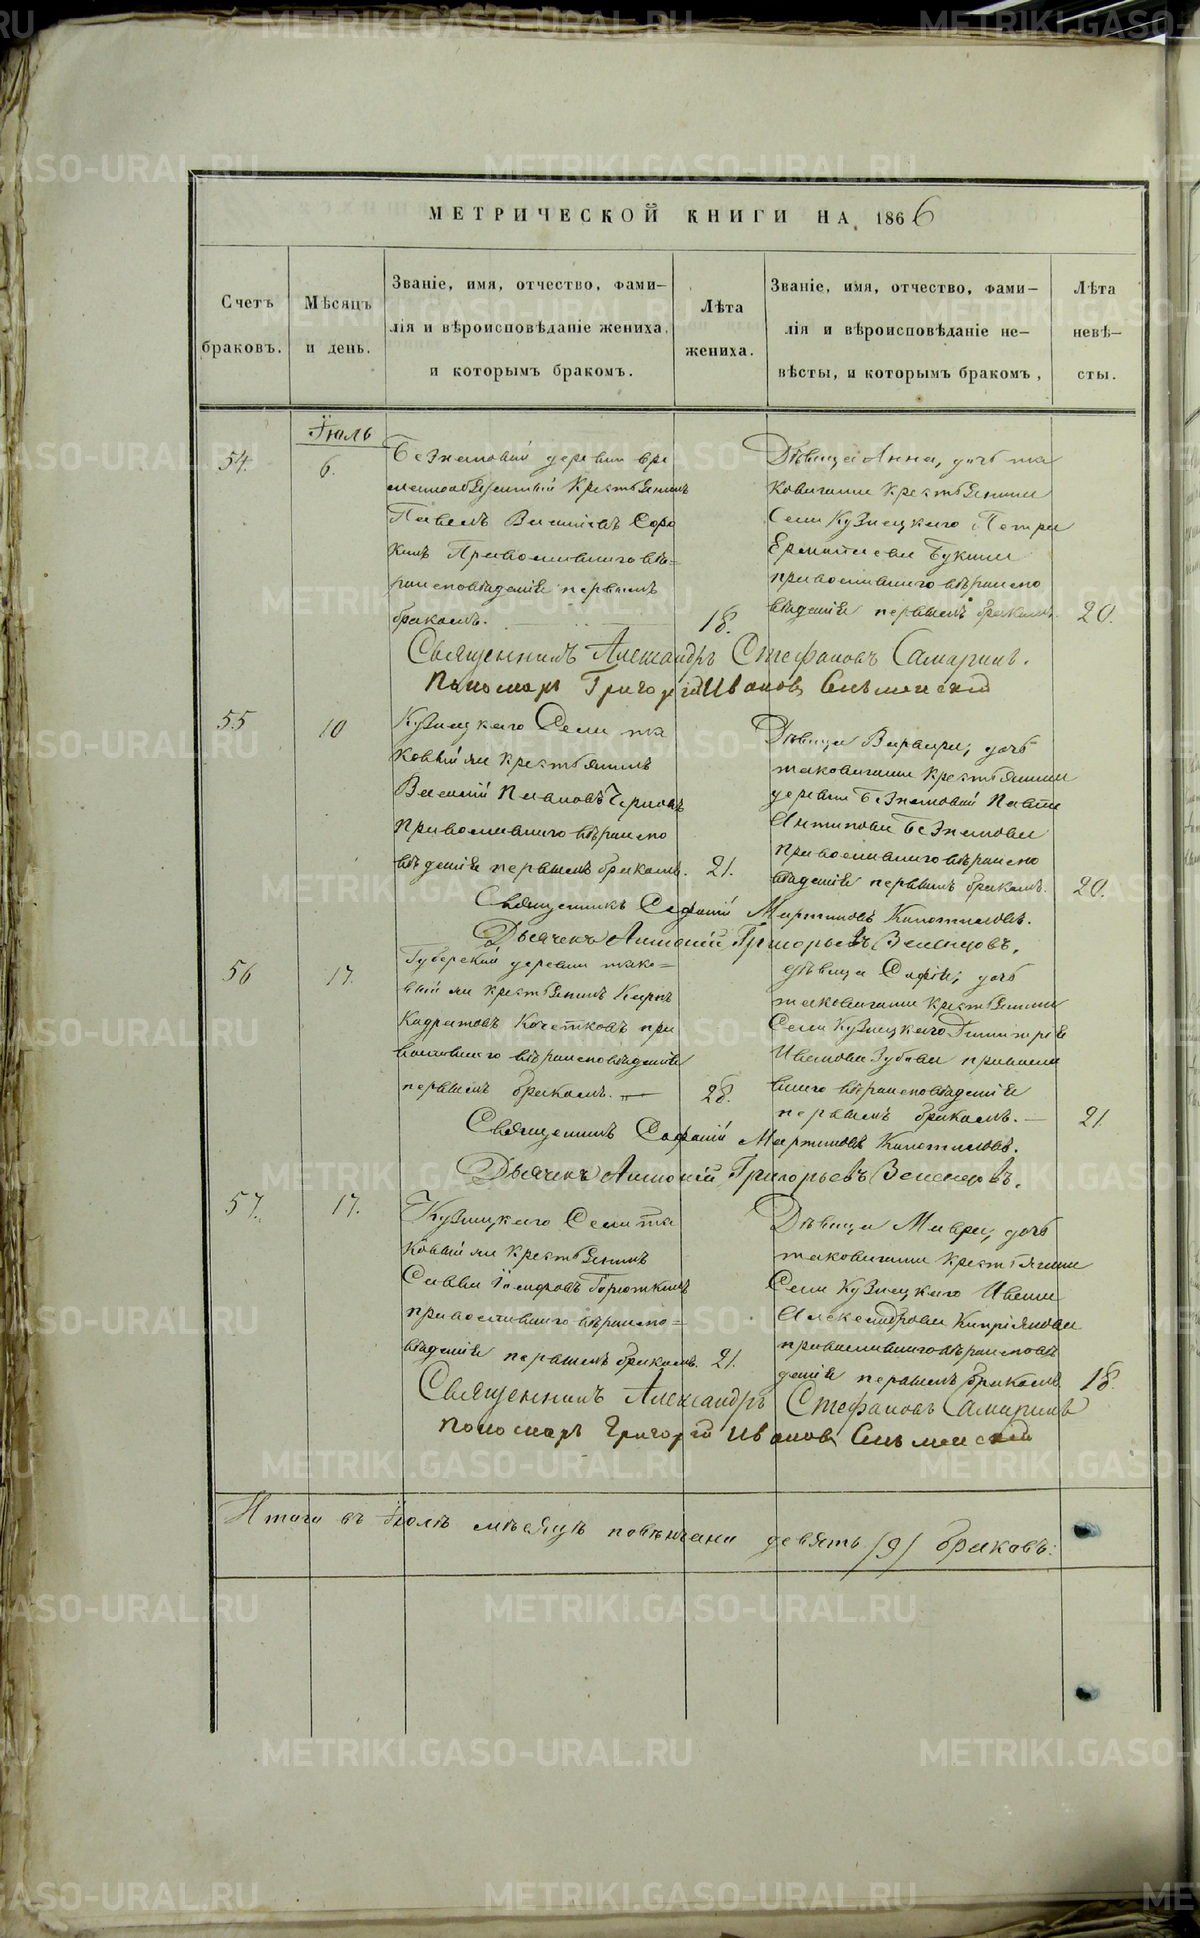 МЕТРИЧЕСКОЙ КНИГИ НА 1866
Счетъ браковъ.
Мѣсяцъ и день.
Званіе, имя, отчество, фами-
лія и вѣроисповѣданіе жениха,
и которымъ бракомъ.
Лѣта
жениха.
Званіе, имя, отчество, фами-
лія и вѣроисповѣданіе не-
вѣсты, и которымъ бракомъ,
Лѣта
невѣ-
сты.
Іюль
54.
6.
деревни вре
меннообязанный Крестьянинъ
Павелъ Соро
кинъ Православнаго вѣ-
роисповѣданія первымъ
бракомъ.
18.
Дѣвица Анна, дочь та
коваго же крестьянина
Села Кузнецкаго Петра
Букина
православнаго вѣроиспо
вѣданія первымъ бракомъ.
20.
Священникъ Александръ Стефановъ Самаринъ.
Пономарь Григорій Ивановъ
55
10
Кузнецкаго Села та
ковый же крестьянинъ
Василій Ивановъ Черновъ
Православнаго вѣроиспо
вѣданія первымъ бракомъ.
21.
Дѣвица Варвара, дочь
таковаго же крестьянина
деревни Павла
Антипова
Православнаго вѣроиспо
вѣданія первымъ бракомъ.
20.
Священникъ Мартиновъ
Дьячекъ Антоній Григорьевъ Зеленцовъ.
56
17.
Губерской деревни тако-
вый же крестьянинъ Карпъ
Кочетковъ пра
вославнаго вѣроисповѣданія
первымъ бракомъ.
28.
дѣвица Софія, дочь
таковаго же крестьянина
Села Кузнецкаго Димитрія
Иванова Зубова правосла
внаго вѣроисповѣданія
первымъ бракомъ.
21
Священникъ Мартиновъ
Дьячекъ Антоній Григорьевъ Зеленцовъ.
57.
17.
Кузнецкаго Села та
ковый же крестьянинъ
Савва
православнаго вѣроиспо-
вѣданія первымъ бракомъ.
21.
Дѣвица Мавра, дочь
таковаго же крестьянина
Села Кузнецкаго Ивана
Александрова Кипріянова
православнаго вѣроисповѣ
данія первымъ бракомъ.
18.
Священникъ Александръ Стефановъ Самаринъ
Пономарь Григорій Ивановъ
Итого въ Іюлѣ мѣсяцѣ повѣнчано девять /9/ браковъ:
METRIKI.GASO-URAL.RU